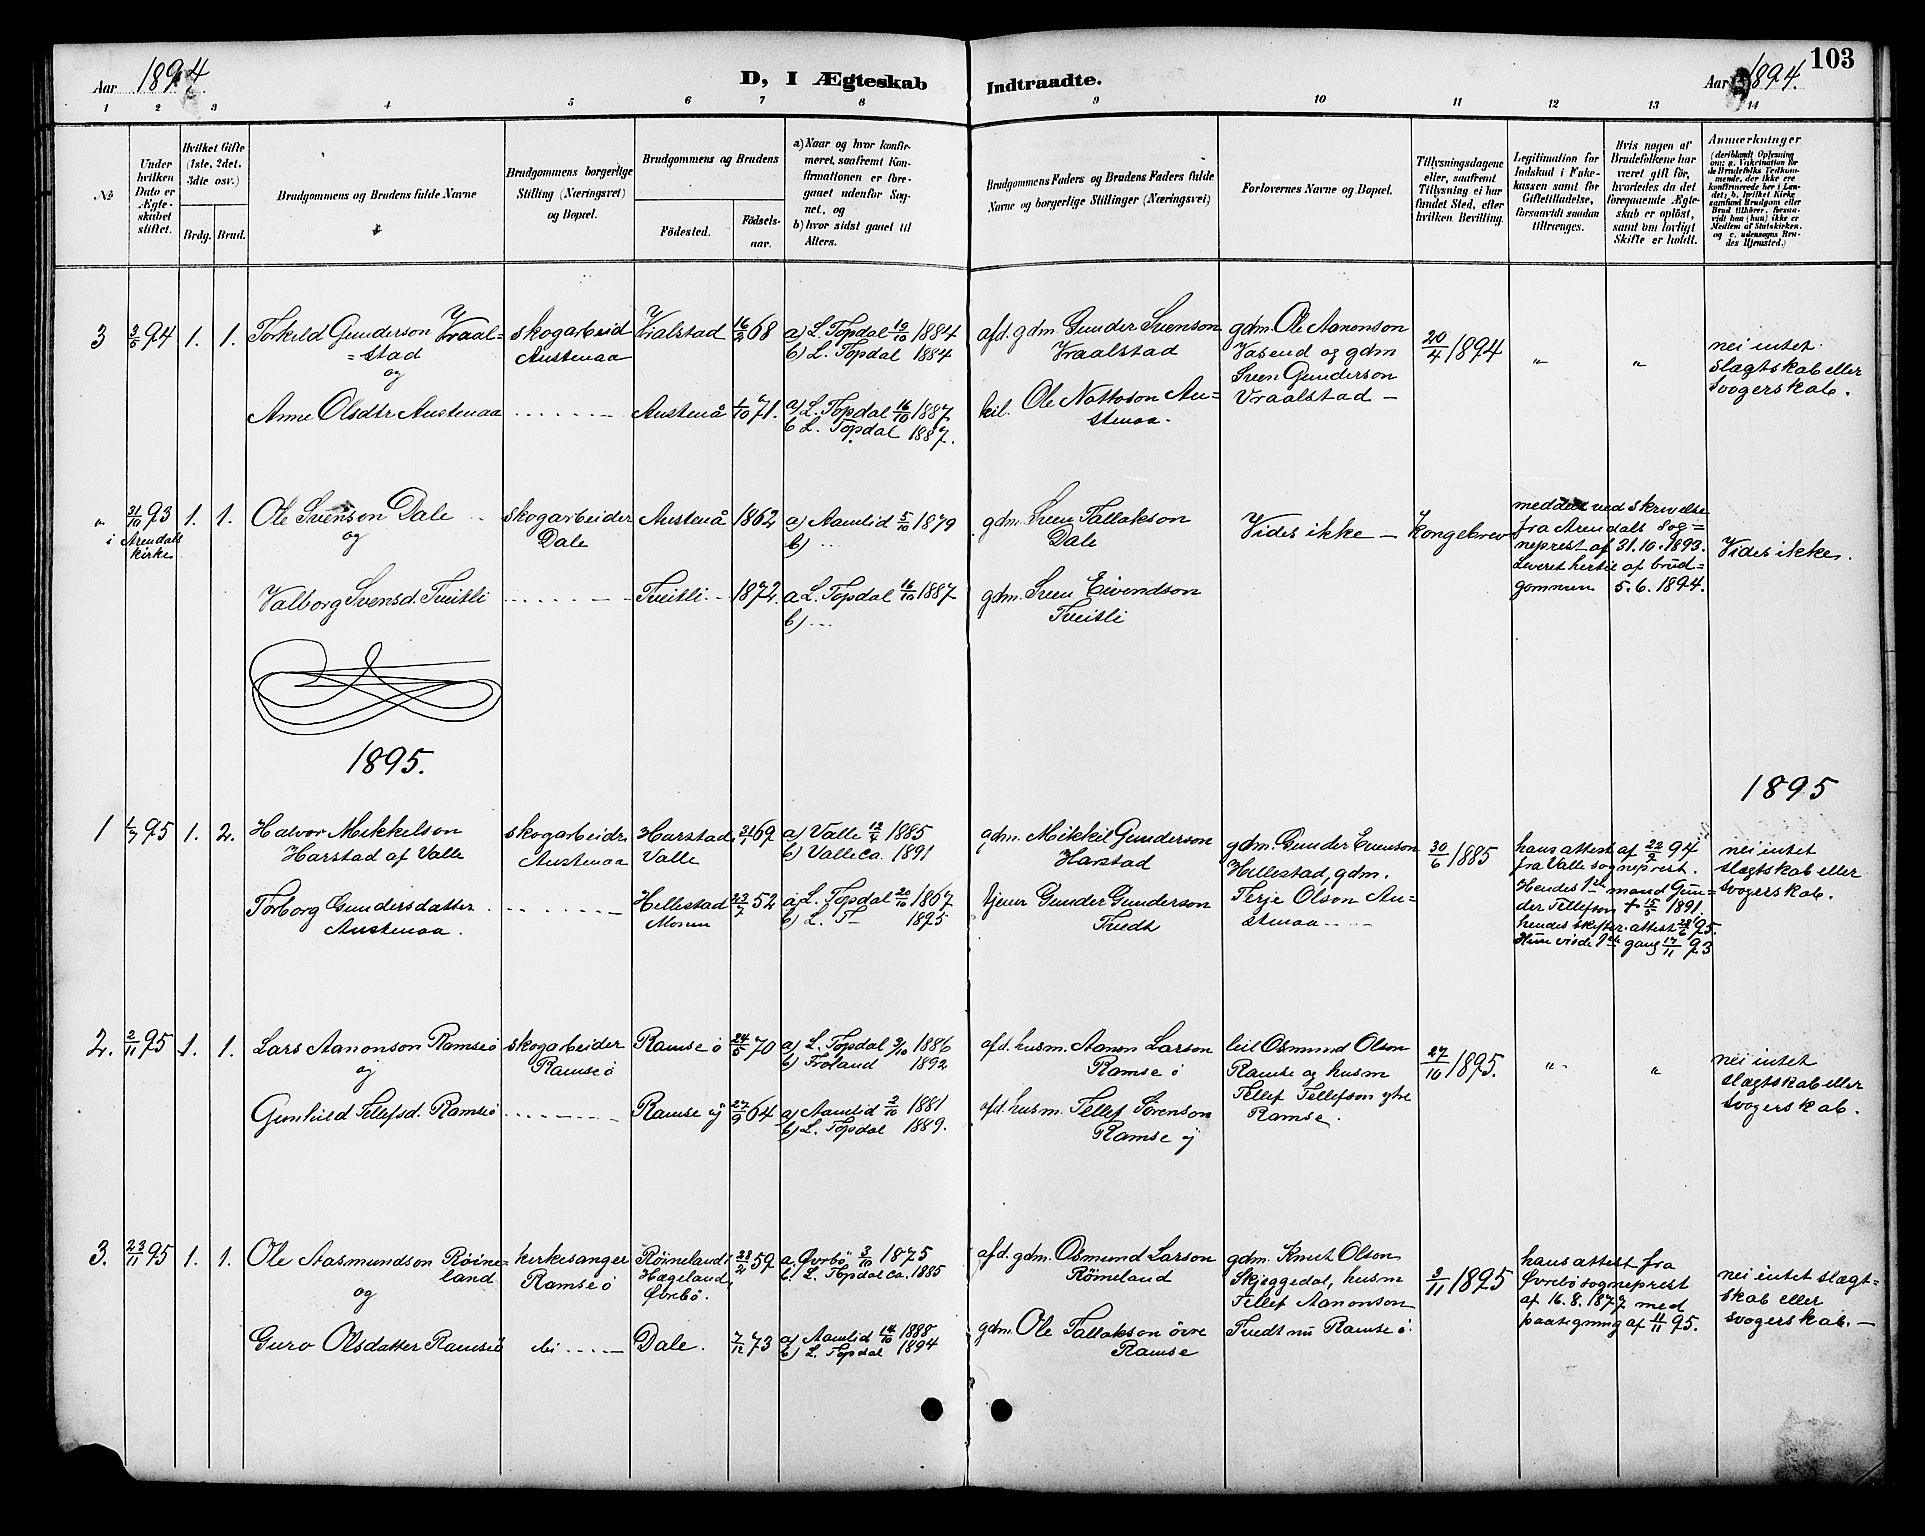 Aar 1894.
D, I Ægteskab
Indtraadte.
Aar 1894.
103
1 2 3 4 5 6 7 8 9 10 11 12 13 14
No
Under hvilken Dato er Ægteskabet stiftet.
Hvilket Gifte (1ste, 2det, 3die osv.)
Brdg. Brud.
Brudgommens og Brudens fulde Navne
Brudgommens borgerlige Stilling (Næringsvei) og Bopæl.
Brudgommens og Brudens
Födested.
Födselsaar.
a) Naar og hvor konfirmeret, saafremt Konfirmationen er foregaaet udenfor Sognet, og
b) hvor sidst gaaet til Alters.
Brudgommens Faders og Brudens Faders fulde Navne og borgerlige Stillinger (Næringsvei)
Forlovernes Navne og Bopæl.
Tillysningsdagene eller, saafremt Tillysning ei har fundet Sted, efter hvilken Bevilling.
Legitimation for Indskud i Enkekassen samt for Giftetilladelse, forsaavidt saadan tiltrænges.
Hvis nogen af Brudefolkene har været gift før, hvorledes da det foregaaende Ægteskab er oplöst, samt om lovligt Skifte er holdt.
Anmærkninger
3 94 1. 1.
Torkild Gunderson Vraal=
=stad
og
Anne Olsdtr Austenaa
skogarbeid
Austenaa
Vralstad 16/2 68
a) L. Topdal 12/10 1884
b) L. Topdal 1884
Austenå 1/10 71.
a) L. Topdal 16/10 1887
b L. Topdal 1887.
afd. gdm. Gunder Svenson
Vraalstad
kil. Ole Nottoson Au=
stenaa.
gdm. Ole Aanonson
Vasend og gdm
Sven Gunderson
Vraalstad —
20/4 1894
„ „
nei intet
slægtskab eller
svogerskab.
„ 31/10 93 1. 1.
i Arendals
kirke
Ole Svenson Dale
og
Valborg Svensd. Tveitli
skogarbeider
Dale
Austenå 1862
a) Aamlid 5/10 1879
b) ...
Tveitli 1872.
a L. Topdal 16/10 1887
b) ...
gdm. Sven Tallakson
Dale
gdm. Sven Eivendson
Tveitli
Vides ikke —
Kongebrev
meddelt ved skrivelse
fra Arendals sog=
neprest af 31.10.1893.
Leveret hertil af brud=
gommen 5.6.1894.
Vides ikke.
1895.
1895
1 1/7 95 1. 2.
Halvor Mikkelson
Harstad af Valle
Torborg Gundersdatter
Austenaa.
skogarbeidr
Austenaa
Harstad
Valle
69
a) Valle 12/4 1885
b) Valle ca. 1891
Hellestad
Moren
23/7 52
a) L. Topdal 20/10 1867
b) L. T— 1895
gdm. Mikkil Gunderson
Harstad
tjener Gunder Gunderson
Tvedt
gdm. Gunder Evenson
Hellestad, gdm.
Terje Olson Au=
stenaa
30/6 1885
hans attest af 22/2 94
fra Valle sogneprest.
Hendes 1ste mand Gun=
der Tellefson † 15/5 1891.
hendes skifter. attest 28/6 95.
Hun viede 1ste gang 17/11 93
nei intet
slægtskab eller
svogerskab.
2. 2/11 95 1. 1.
Lars Aanonson Ramseö
og
Gunhild Tellefsd. Ramseö
skogarbeider
Ramseö
Ramse ö 24/5 70
a) L. Topdal 3/10 1886
b) Froland 1892
Ramse y 27/9 64
a) Aamlid 2/10 1881
b) L. Topdal 1889.
afd. husm. Aanon Larson
Ramse ö
afd. husm. Tellef Sörenson
Ramse y
leil Osmund Olson
Ramse og husm
Tellef Tellefson ytre
Ramse.
27/10 1895.
„ „
nei intet
slægtskab eller
svogerskab.
3. 23/11 95 1. 1.
Ole Aasmundson Röine=
land
og
Guro Olsdatter Ramseö
kirkesanger
Ramseö
Röineland i
Hægeland i
Øvrebö.
28/2 59
a. Øvrebö 3/10 1875
b. L. Topdal ca. 1885
Dale. 7/12 73
a) Aamlid 14/10 1888
b) L. Topdal 1894
afd. gdm. Osmund Larson
Röineland
gdm. Ole Tallakson övre
Ramse
gdm. Knut Olson
Skjeggedal, husm
Tellef Aanonson
Tvedt nu Ramse ö.
3/11 1895
hans attest fra
Øvrebö sogneprest
af 16.8.1877 med
paategning af 4/11 95.
nei intet slægt=
skab eller
svogerskab. —